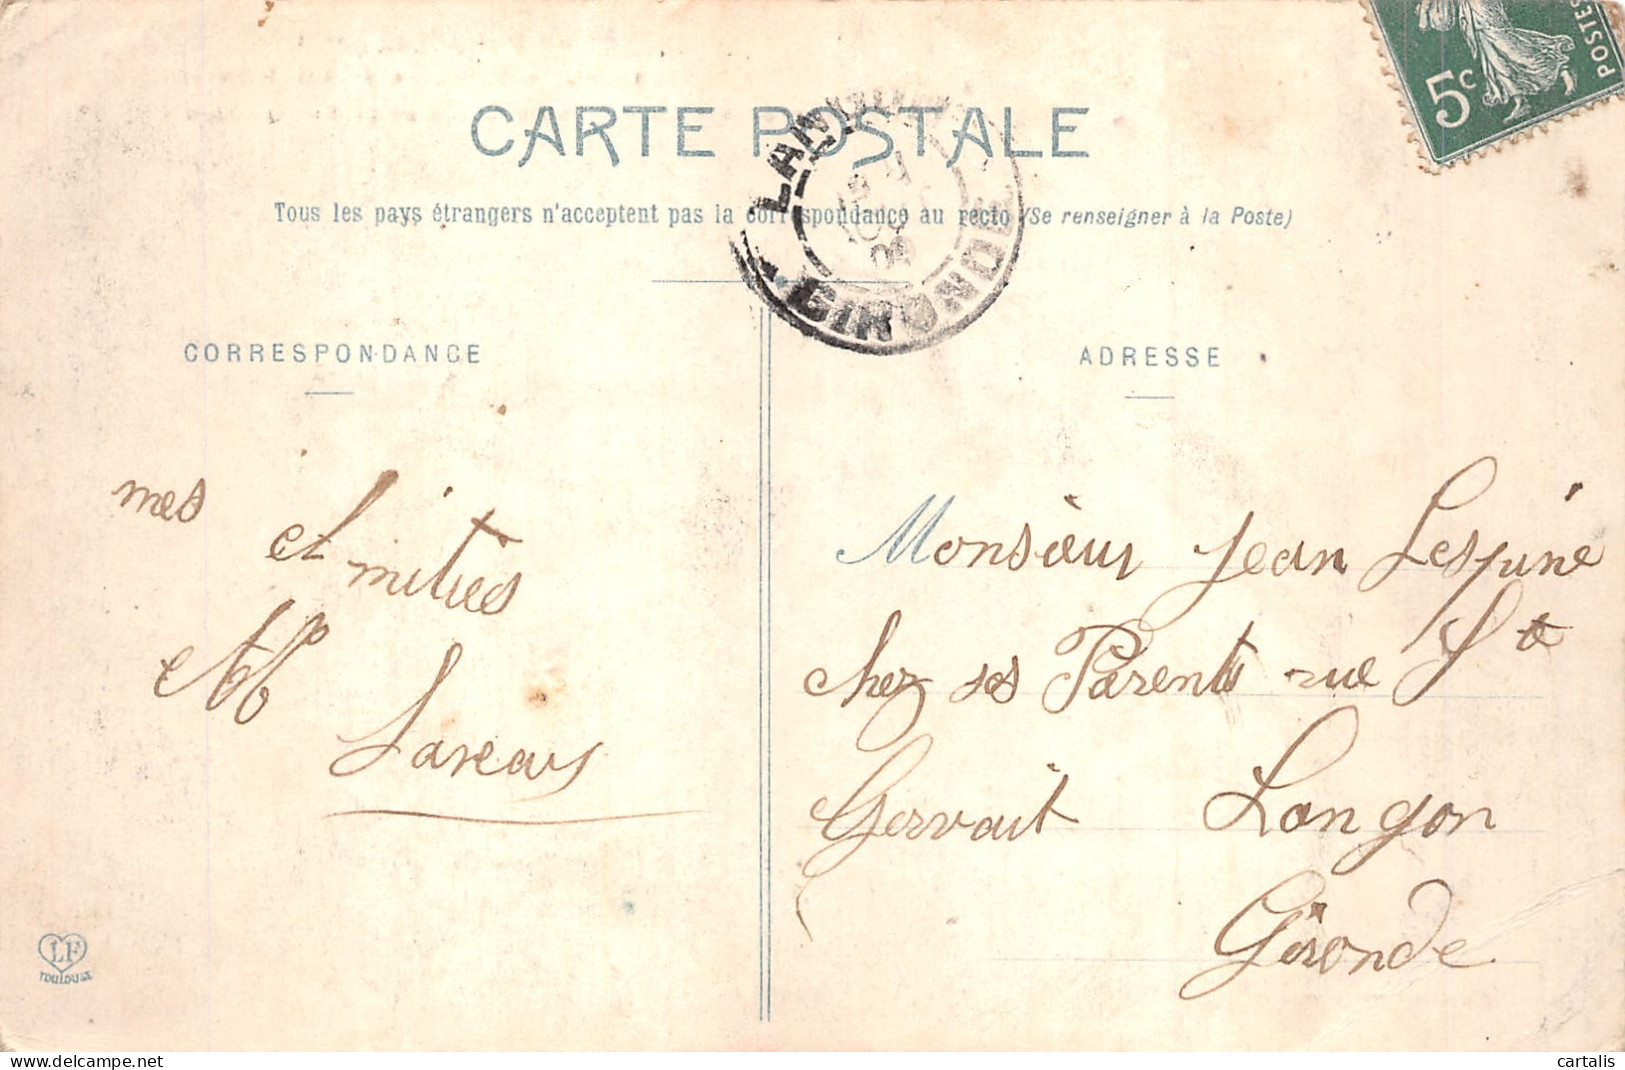 CARTE POSTALE
Tous les pays étrangers n'acceptent pas la correspondance au recto (Se renseigner à la Poste)
5c
POSTES
GIRONDE
09
CORRESPONDANCE
mes
Amitiés
Lareaus
LF
TOULOUSE
ADRESSE
Monsieur Jean Lespine
chez ses Parents rue St
Gervait Langon
Gironde
cartalis